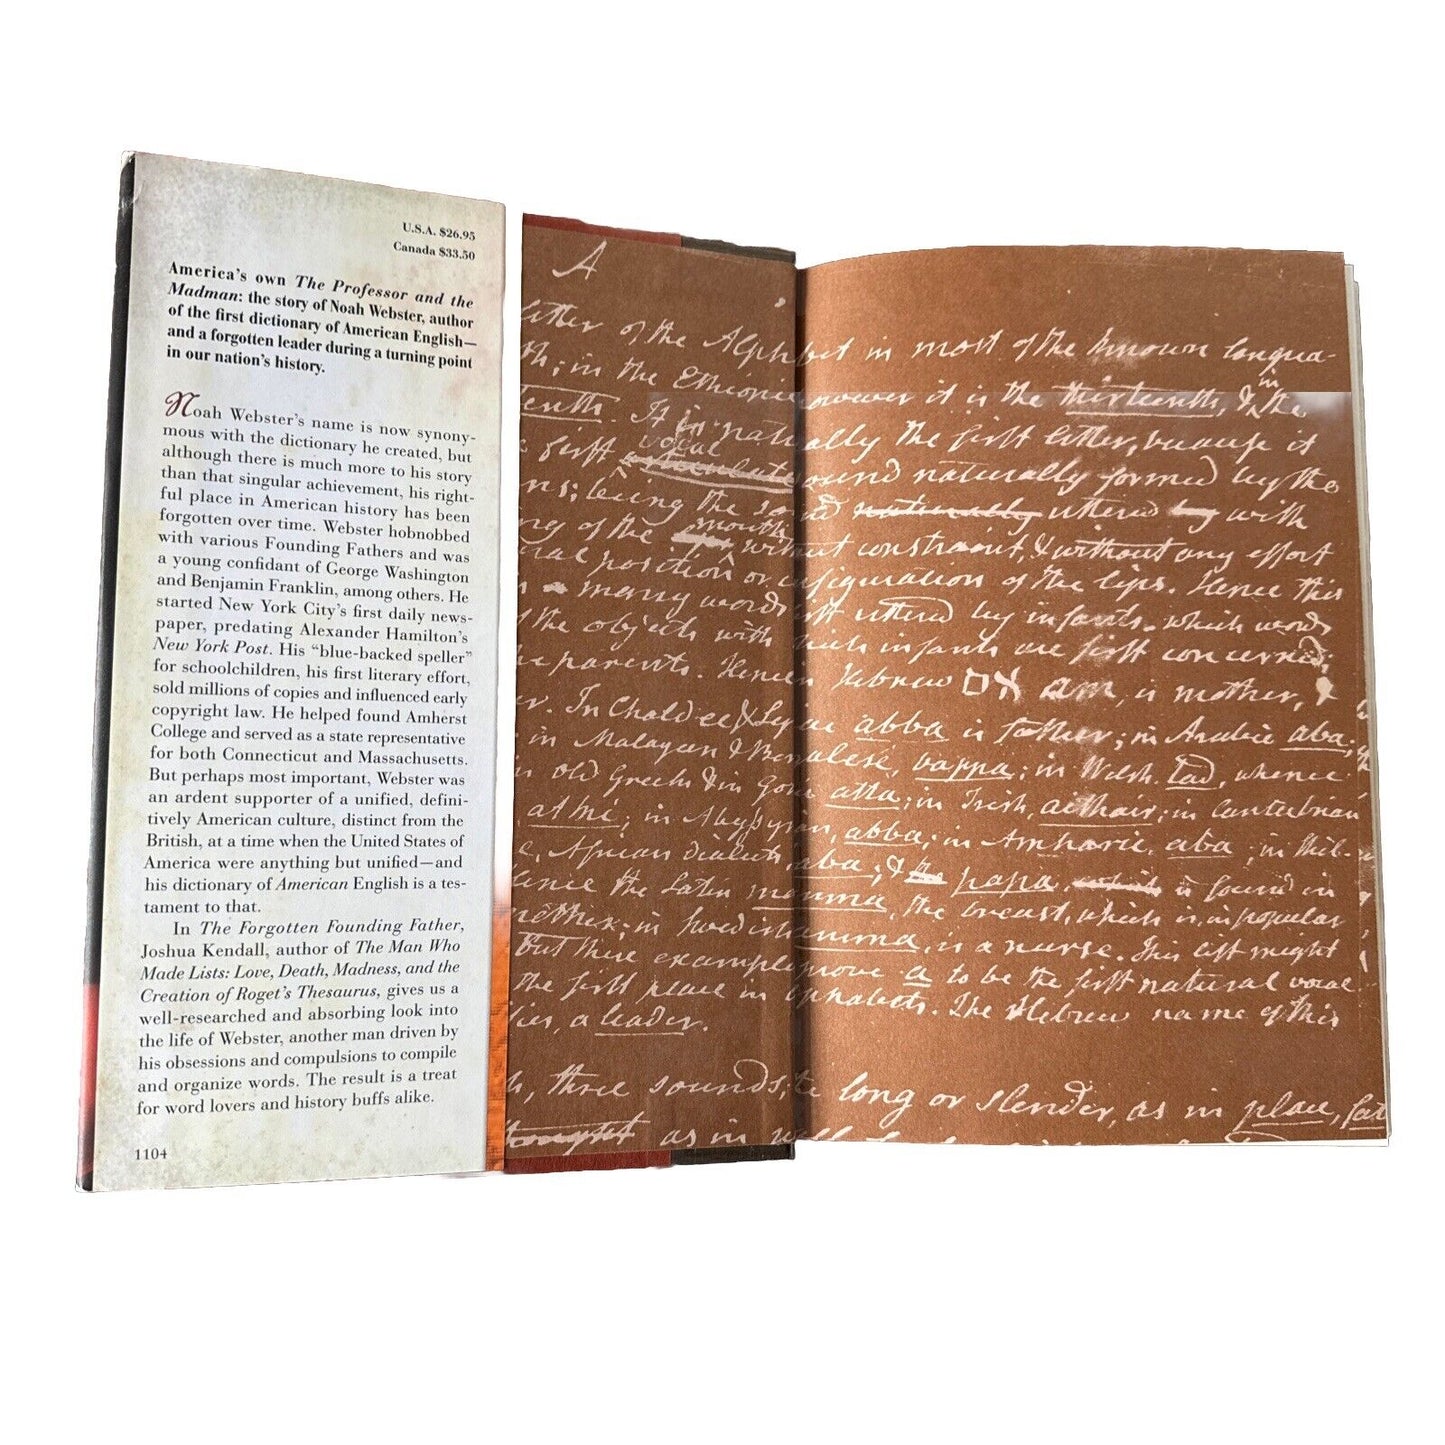 U.S.A. $26.95
Canada $33.50
America's own The Professor and the
Madman: the story of Noah Webster, author
of the first dictionary of American English—
and a forgotten leader during a turning point
in our nation's history.
Noah Webster's name is now synony-
mous with the dictionary he created, but
although there is much more to his story
than that singular achievement, his right-
ful place in American history has been
forgotten over time. Webster hobnobbed
with various Founding Fathers and was
a young confidant of George Washington
and Benjamin Franklin, among others. He
started New York City's first daily news-
paper, predating Alexander Hamilton's
New York Post. His “blue-backed speller”
for schoolchildren, his first literary effort,
sold millions of copies and influenced early
copyright law. He helped found Amherst
College and served as a state representative
for both Connecticut and Massachusetts.
But perhaps most important, Webster was
an ardent supporter of a unified, defini-
tively American culture, distinct from the
British, at a time when the United States of
America were anything but unified—and
his dictionary of American English is a tes-
tament to that.
In The Forgotten Founding Father,
Joshua Kendall, author of The Man Who
Made Lists: Love, Death, Madness, and the
Creation of Roget's Thesaurus, gives us a
well-researched and absorbing look into
the life of Webster, another man driven by
his obsessions and compulsions to compile
and organize words. The result is a treat
for word lovers and history buffs alike.
1104
A
letter of the Alphabet in most of the known langua-
th; in the Ethiopic however it is the thirteenth, & in the
tenth. It is naturally the first letter, because it
first vocal sound naturally formed by the
ns; being the sound naturally uttered by with
ing of the mouth without constraint, & without any effort
ral position or configuration of the lips. Hence this
many words first uttered by infants, which words
the objects with which infants are first concerned;
he parents. Hence in Hebrew אם am, is mother,
er. In Chaldee & Syriac abba is father; in Arabic aba;
in Malayan & Bengalese, bappa; in Welsh tad, whence
in old Greek & in Goth atta; in Irish aithair; in Cantabrian
; in Abyssinian, abba; in Amharic, aba; in
African dialects aba; & the papa which is found in
ence the Latin mamma, the breast, which is, in popular
; in Swedish amma, is a nurse. This list might
but these examples prove a to be the first natural vocal
the first place in alphabets. The Hebrew name of this
, a leader.
h, three sounds, long or slender, as in place, fate
as in